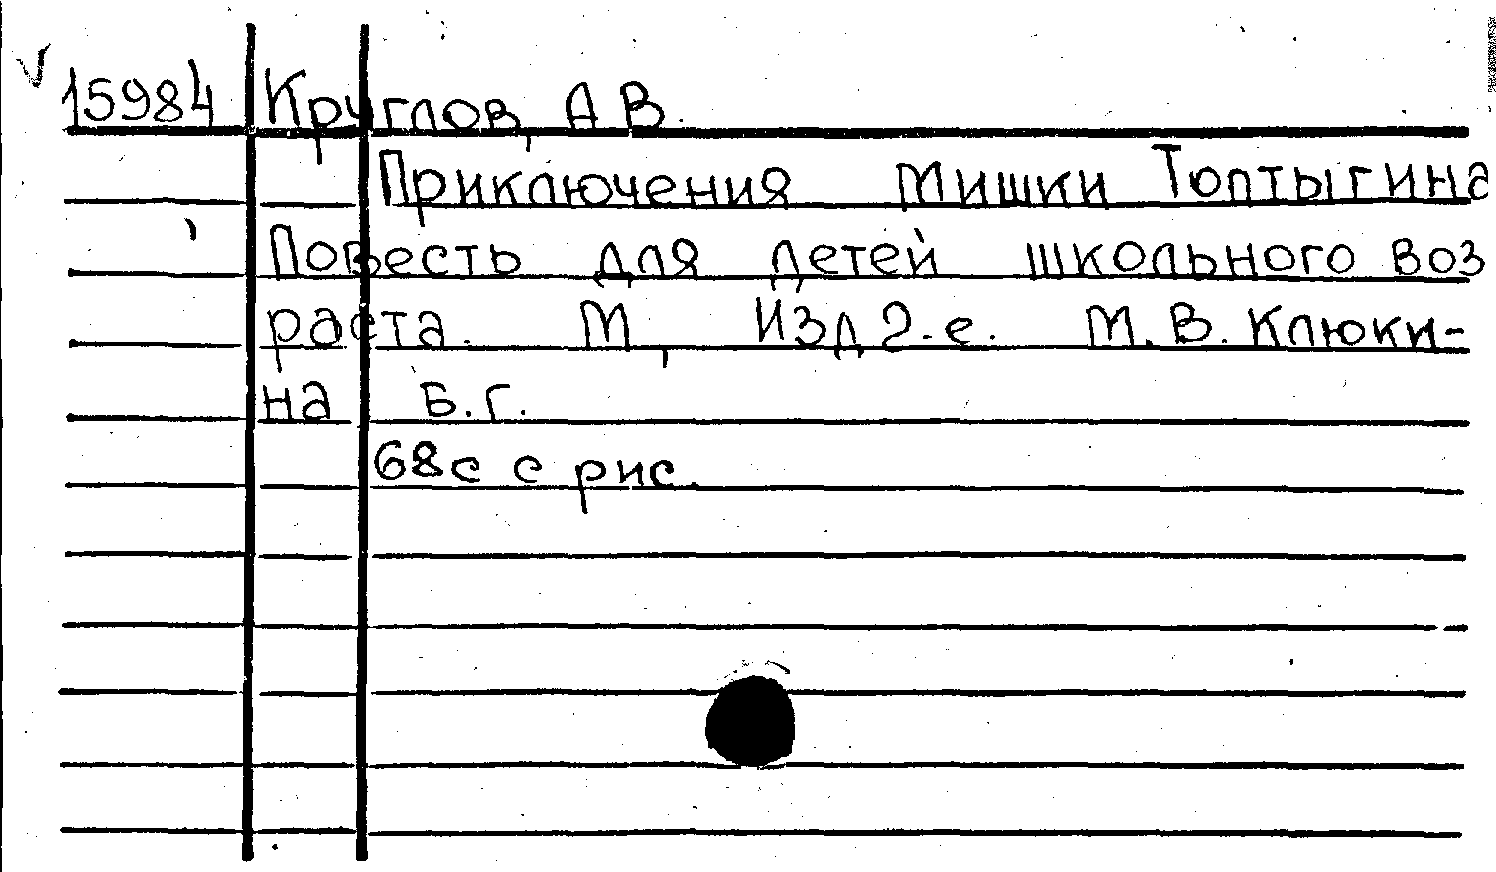 15984 Круглов, А В.
Приключения Мишки Топтыгина
Повесть для детей школьного воз
раста. М, Изд 2-е. М.В. Клюки-
на Б.г.
68с с рис.